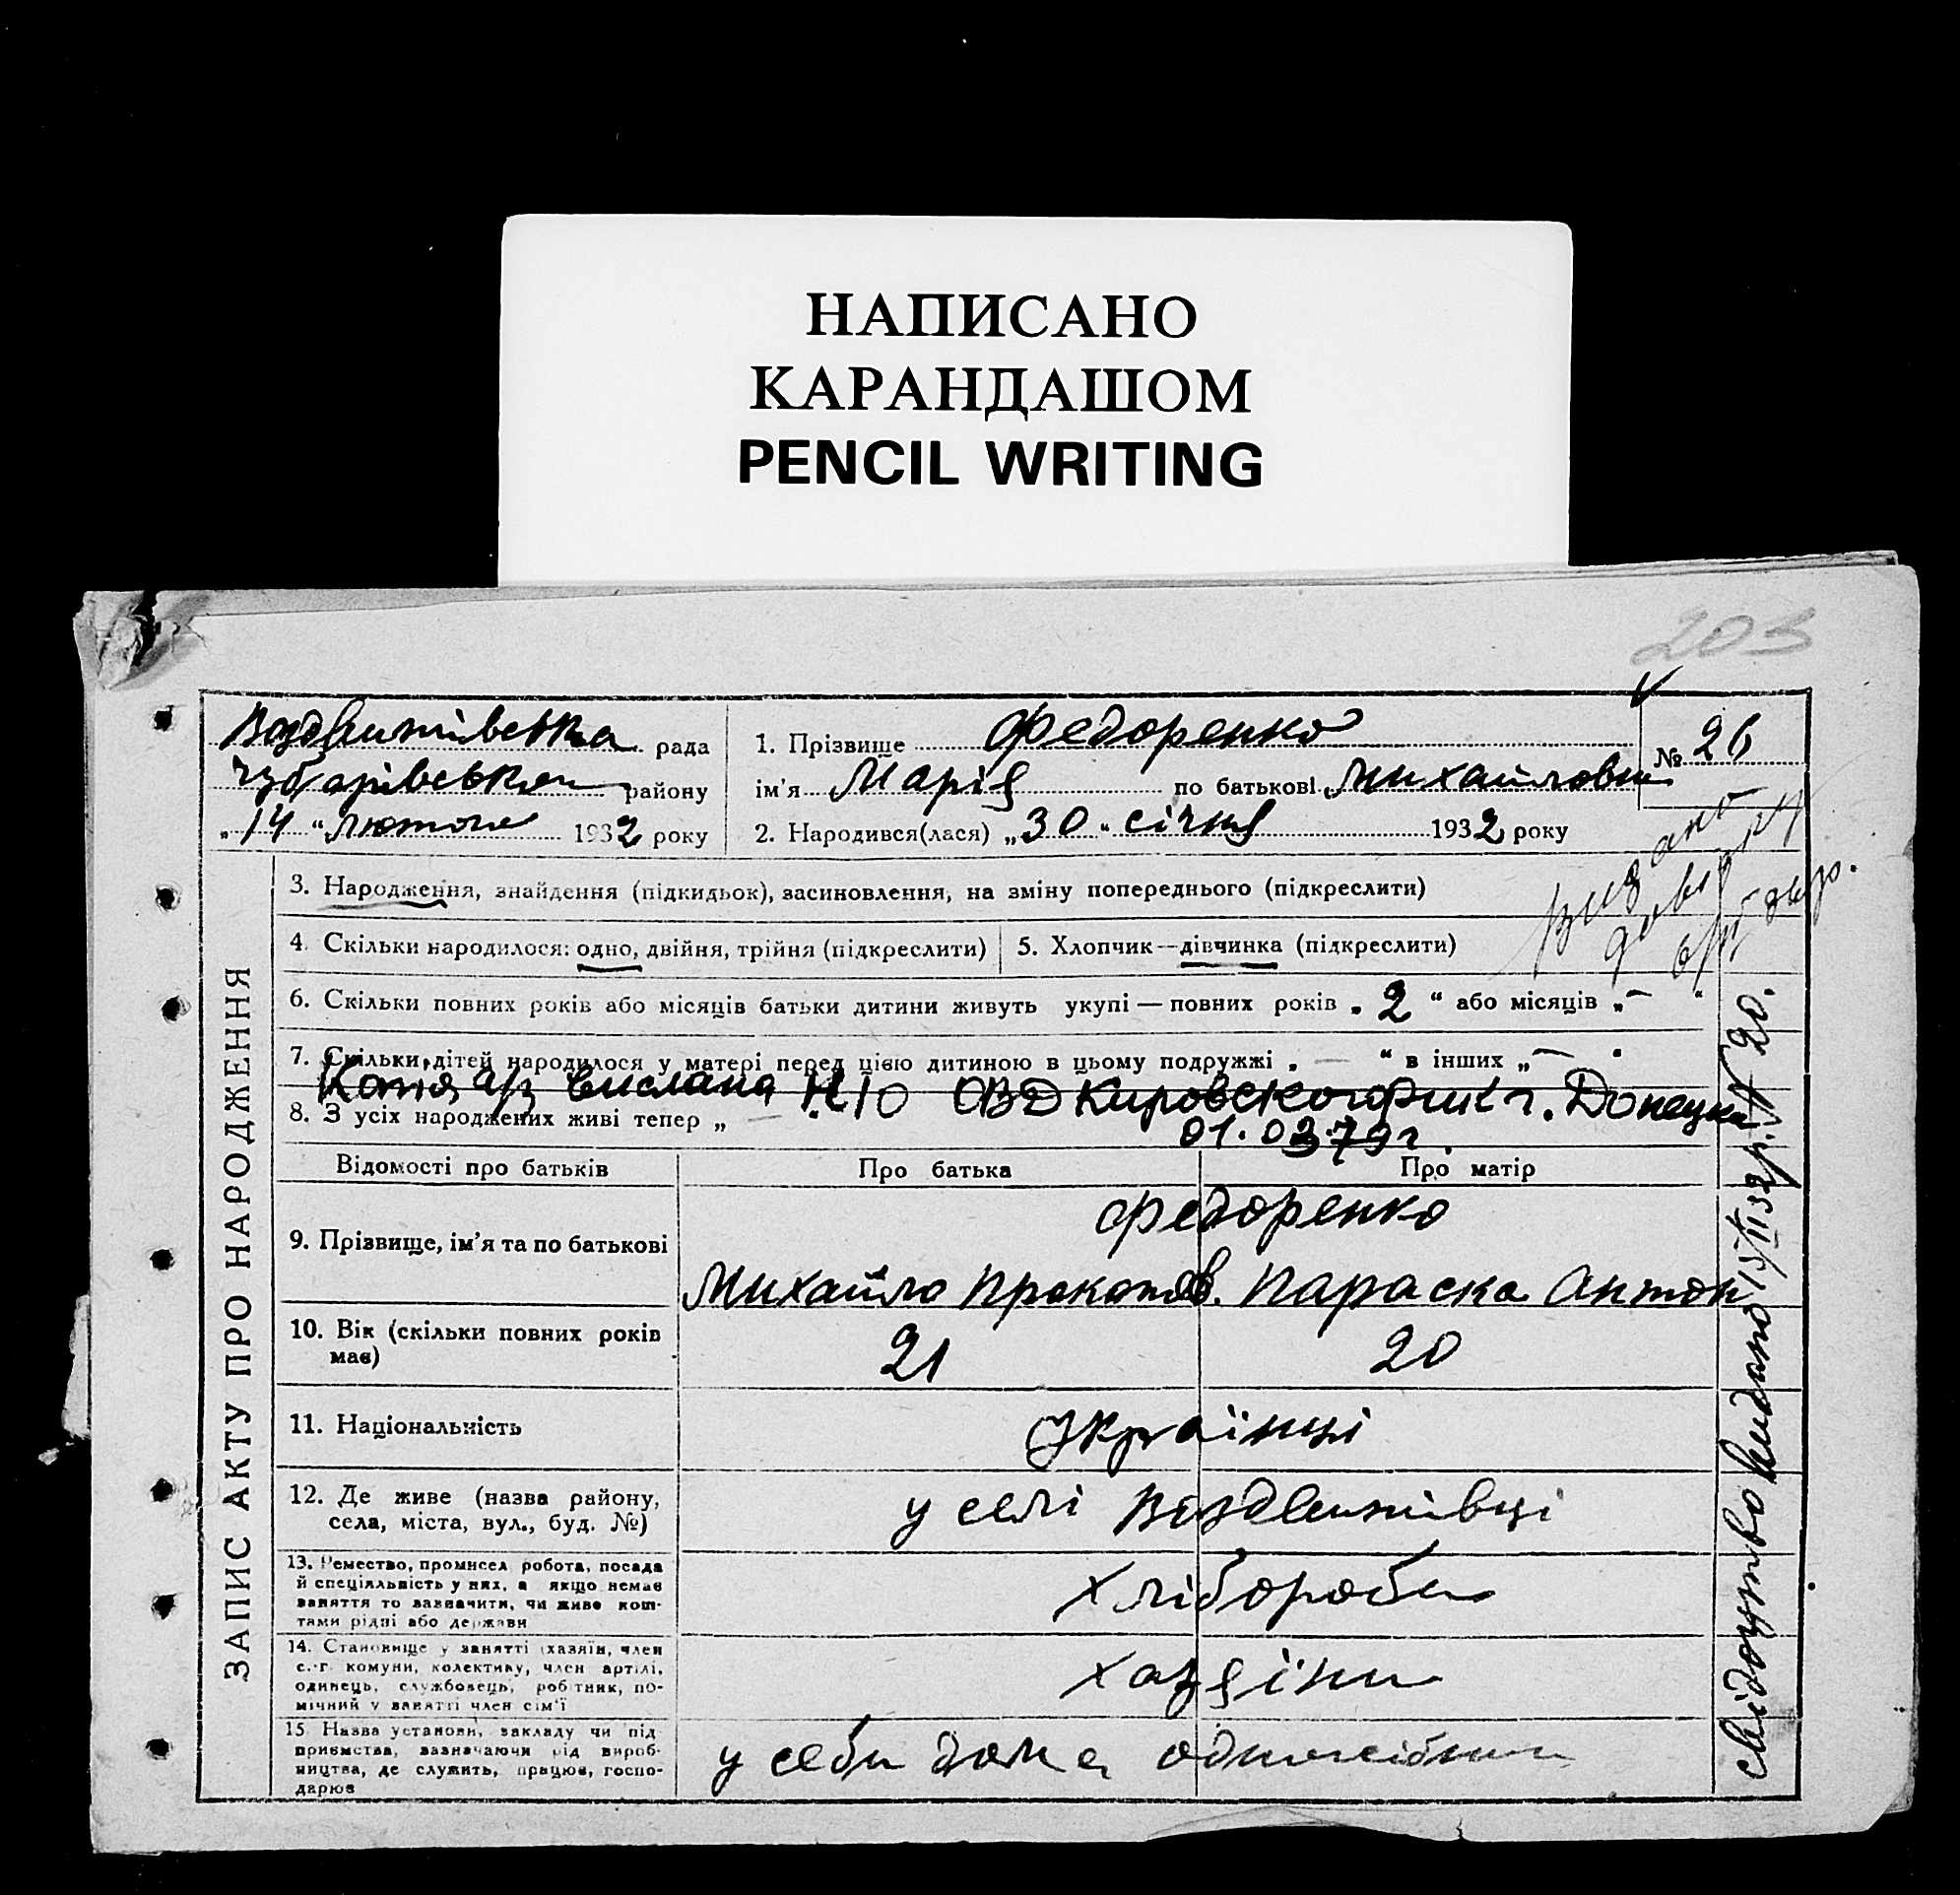 НАПИСАНО
КАРАНДАШОМ
PENCIL WRITING
203
Воздвижівська рада
Чубарівського району
„14“ лютого 1932 року
1. Прізвище Федоренко
ім'я Марія по батькові Михайловн
2. Народився(лася) „30“ січня 1932 року
№ 26
ЗАПИС АКТУ ПРО НАРОДЖЕННЯ
3. Народження, знайдення (підкидьок), засиновлення, на зміну попереднього (підкреслити)
4. Скільки народилося: одно, двійня, трійня (підкреслити)
5. Хлопчик—дівчинка (підкреслити)
6. Скільки повних років або місяців батьки дитини живуть укупі — повних років „2“ або місяців „—“
7. Скільки дітей народилося у матері перед цією дитиною в цьому подружжі „—“ в інших „—“
Копія а/з выслана НЮ ОВД Кировского г. Донецка
01.03.79г
8. З усіх народжених живі тепер „ —
Відомості про батьків
Про батька
Про матір
9. Прізвище, ім'я та по батькові
Федоренко
Михайло Прокопов. Параска Антон
10. Вік (скільки повних років має)
21
20
11. Національність
Українці
12. Де живе (назва району,
села, міста, вул., буд. №)
у селі Воздвижівці
13. Ремество, промисел робота, посада
й спеціяльність у них, а якщо немає
заняття то зазначити, чи живе кош-
тами рідні або держави
Хлібороби
14. Становище у занятті (хазяїн, член
с.-г. комуни, колективу, член артілі,
одинець, службовець, робітник, по-
мічний у занятті член сім'ї
хазяїни
15. Назва установи, закладу чи під
приємства, зазначаючи рід вироб-
ництва, де служить, працює, госпо-
дарює
у себи дома одноосібники
свідоцтво видано 15/II 32р. № 20.